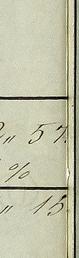 " 57.
%
" 15.